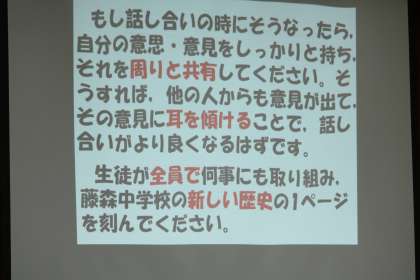 もし話し合いの時にそうなったら,
自分の意思・意見をしっかりと持ち,
それを周りと共有してください。そ
うすれば, 他の人からも意見が出て,
その意見に耳を傾けることで, 話し
合いがより良くなるはずです。
生徒が全員で何事にも取り組み,
藤森中学校の新しい歴史の1ページ
を刻んでください。